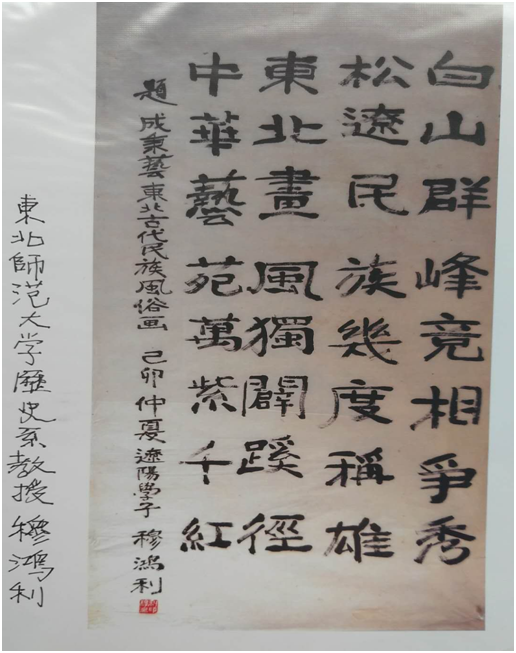 白山群峰竞相爭秀
松遼民族幾度稱雄
東北畫風獨闢蹊徑
中華藝苑萬紫千紅
題成秉藝東北古代民族風俗画 己卯仲夏遼陽學子 穆鴻利
東北師范大学歷史系教授穆鴻利